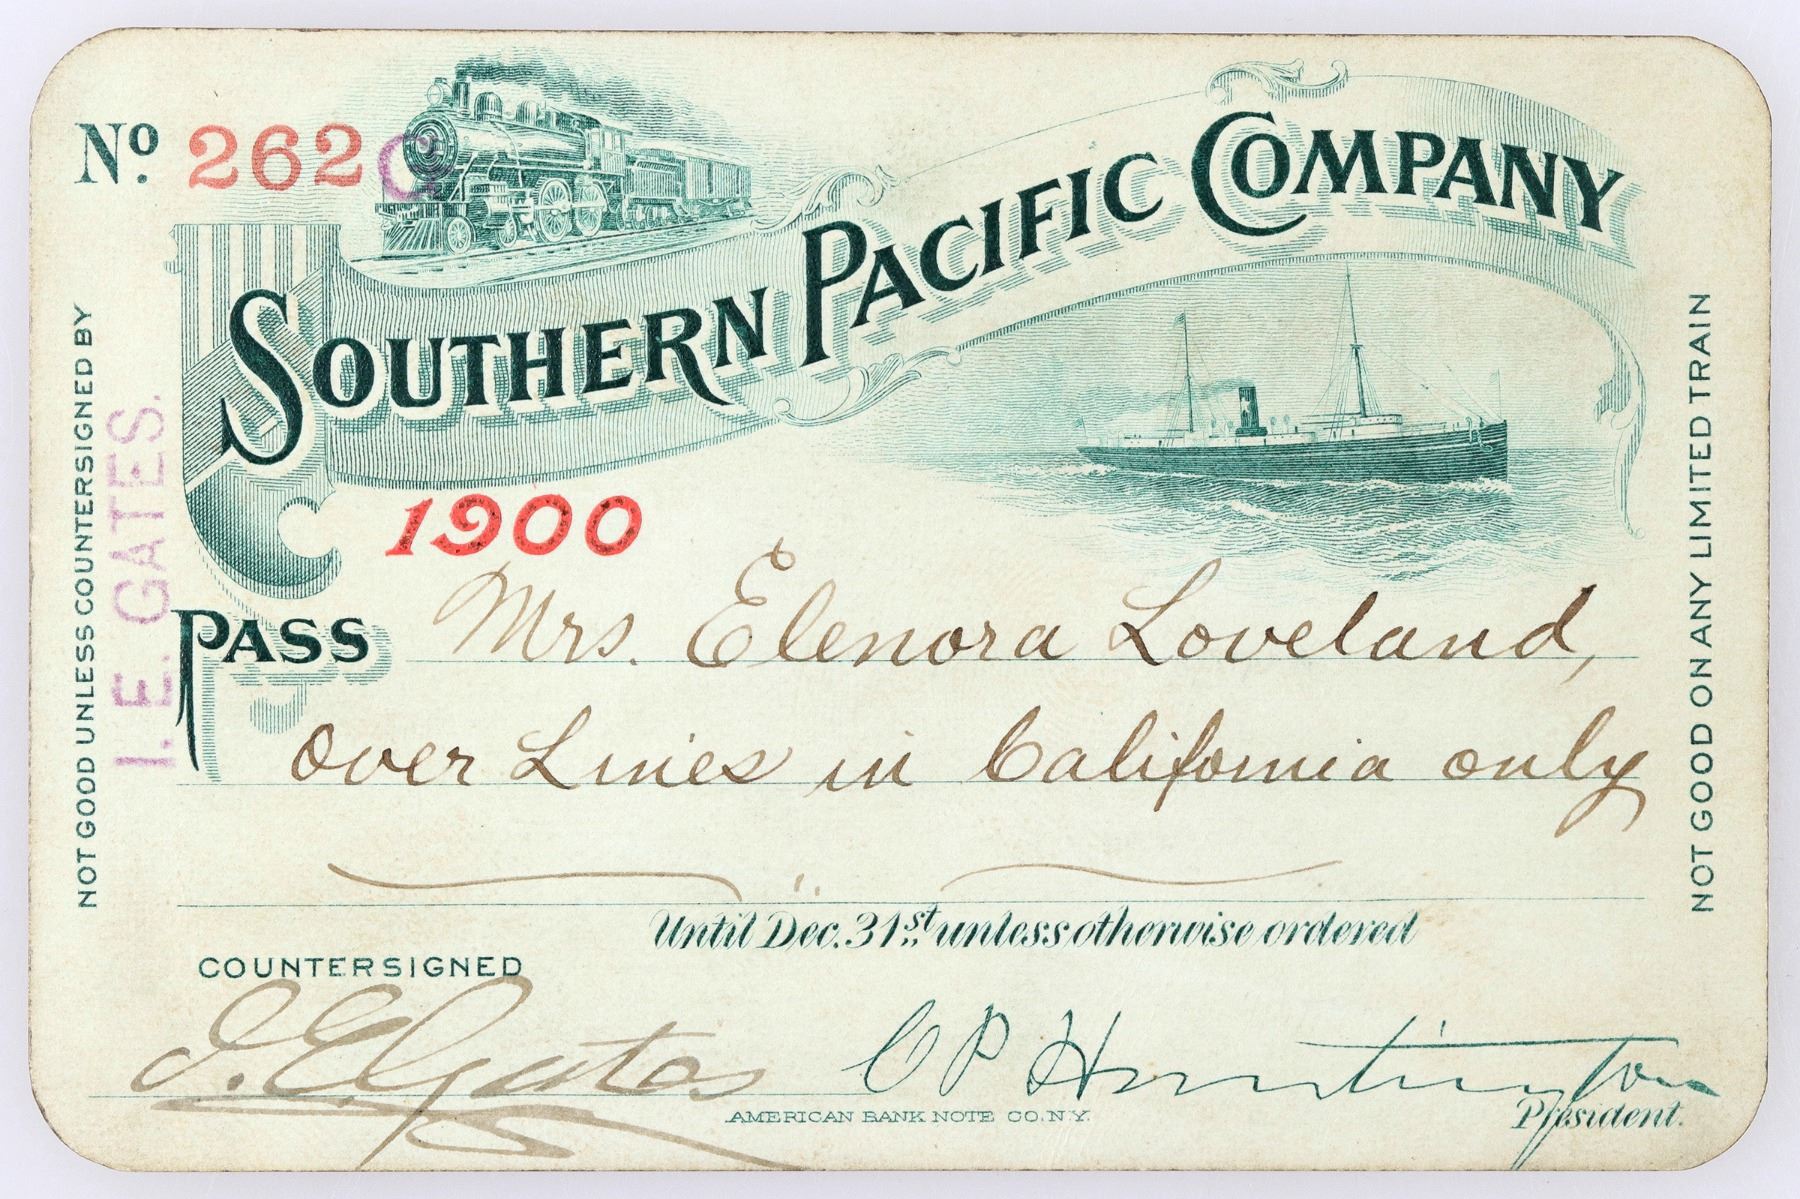 No. 262 C
SOUTHERN PACIFIC COMPANY
NOT GOOD UNLESS COUNTERSIGNED BY
I. E. GATES.
1900
PASS Mrs. Elenora Loveland,
over Lines in California only
Until Dec. 31st unless otherwise ordered
COUNTERSIGNED
I. E. Gates
C P Huntington
President.
AMERICAN BANK NOTE CO. N.Y.
NOT GOOD ON ANY LIMITED TRAIN